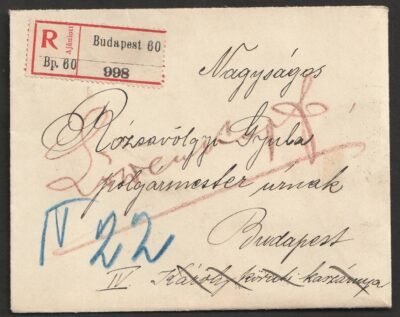 R
Ajánlott
Budapest 60
Bp. 60
998
Nagyságos
Rózsavölgyi Gyula
polgármester úrnak
Budapest
IV Károly körúti kaszárnya
IV 22